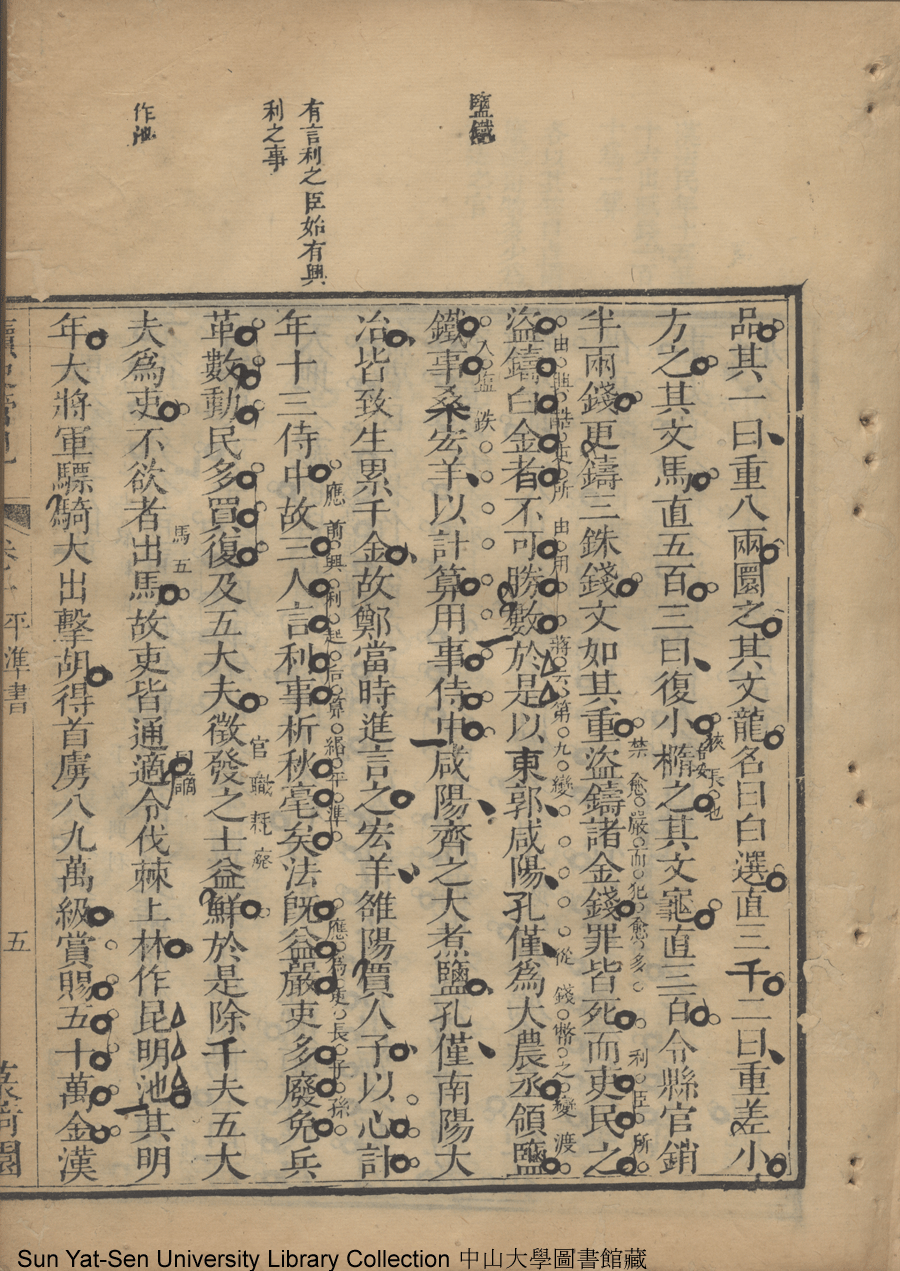 鹽鐵
有言利之臣始有興
利之事
作池
品其一曰重八兩圜之其文龍名曰白選直三千二曰重差小
方之其文馬直五百三曰復小橢之其文龜直三百令縣官銷
狹長也
半兩錢更鑄三銖錢文如其重盜鑄諸金錢罪皆死而吏民之
禁愈嚴而犯愈多利臣所
盜鑄白金者不可勝數於是以東郭咸陽孔僅為大農丞領鹽
由與酷吏所由用將六第九變從錢幣之變渡
鐵事桑宏羊以計算用事侍中咸陽齊之大煮鹽孔僅南陽大
入塩鉄
冶皆致生累千金故鄭當時進言之宏羊雒陽賈人子以心計
年十三侍中故三人言利事析秋毫矣法既益嚴吏多廢免兵
應前興利起后算緡平準應為吏長世孫
革數動民多買復及五大夫徵發之士益鮮於是除千夫五大
官職耗廢
夫為吏不欲者出馬故吏皆通適令伐棘上林作昆明池其明
馬五
同謫
年大將軍驃騎大出擊胡得首虜八九萬級賞賜五十萬金漢
平準書
五
Sun Yat-Sen University Library Collection 中山大學圖書館藏